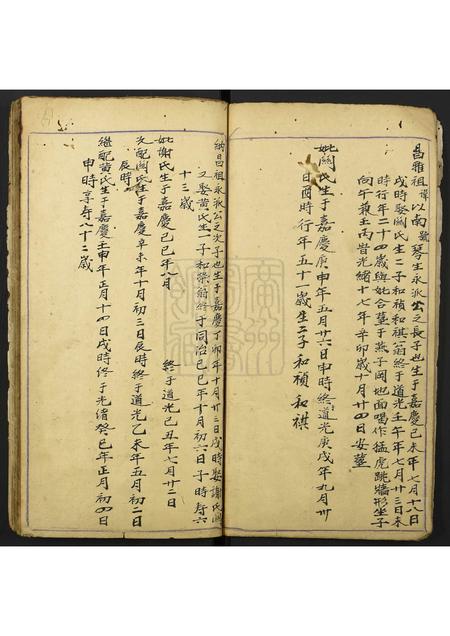 昌雅祖諱以南號琴生永派公之長子也生于嘉慶己未年七月十八日
戌時娶關氏生二子和禎和祺翁終于道光壬午年七月廿三日未
時行年二十四歲與妣合葬于燕子岡地面喝作猛虎跳牆形坐子
向午兼壬丙皆光緒十七年辛卯歲十月廿四日安葬
妣關氏生于嘉慶庚申年五月廿六日申時終道光庚戌年九月卅
日酉時行年五十一歲生二子和禎和祺
納昌祖永派公之次子也生于嘉慶丁卯年十月廿三日戌時娶謝氏關
又娶黃氏生一子和榮翁終于同治己巳年十月初六日子時壽六
十三歲
妣謝氏生于嘉慶己巳年八月 終于道光己丑年七月廿二日
又配關氏生于嘉慶辛未年十月初三日辰時終于道光乙未年五月初二日
辰時
繼配黃氏生于嘉慶壬申年正月十四日戌時終于光緒癸巳年正月初四日
申時享壽八十二歲